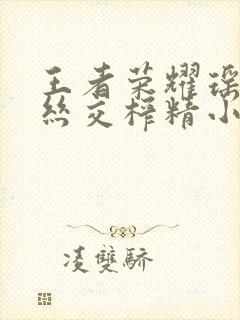 王者荣耀瑶
丝交榨精小
凌双骄